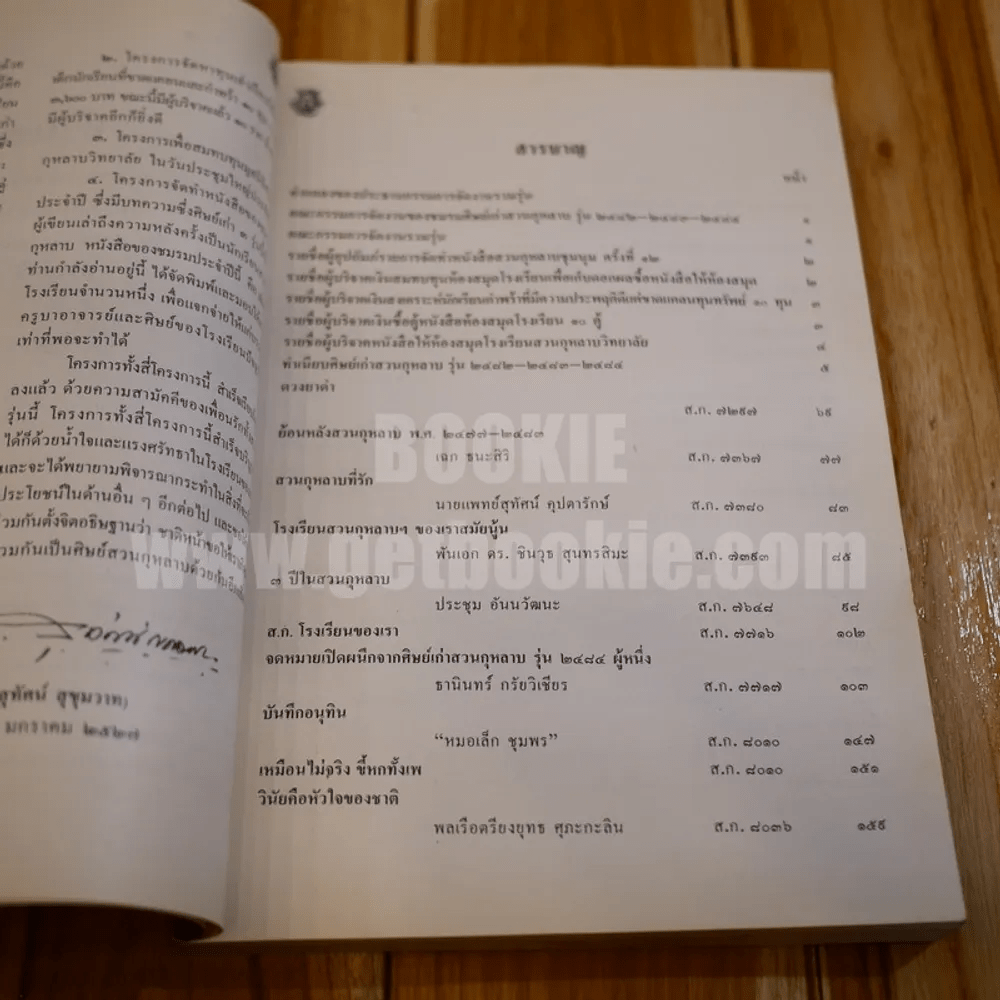 ด้วย
๒. โครงการจัดหาทุน
เด็กนักเรียนที่ขาดแคลนและกำพร้า
๓,๖๐๐ บาท ขณะนี้มีผู้บริจาคแล้ว
มีผู้บริจาคอีกก็ยิ่งดี
๓. โครงการเพื่อสมทบทุน
กุหลาบวิทยาลัย ในวันประชุมใหญ่
๔. โครงการจัดทำหนังสือของ
ประจำปี ซึ่งมีบทความซึ่งศิษย์เก่า ๓
ผู้เขียนเล่าถึงความหลังครั้งเป็นนักเรียน
กุหลาบ หนังสือของชมรมประจำปีนี้
ท่านกำลังอ่านอยู่นี้ ได้จัดพิมพ์และมอบ
โรงเรียนจำนวนหนึ่ง เพื่อแจกจ่ายให้
ครูบาอาจารย์และศิษย์ของโรงเรียน
เท่าที่พอจะทำได้
โครงการทั้งสี่โครงการนี้ สำเร็จ
ลงแล้ว ด้วยความสามัคคีของเพื่อนรัก
รุ่นนี้ โครงการทั้งสี่โครงการนี้สำเร็จ
ได้ก็ด้วยน้ำใจและแรงศรัทธาในโรงเรียน
และจะได้พยายามพิจารณากระทำในสิ่งที่
ประโยชน์ในด้านอื่น ๆ อีกต่อไป และขอ
ร่วมกันตั้งจิตอธิษฐานว่า ชาติหน้าขอให้
ร่วมกันเป็นศิษย์สวนกุหลาบด้วยกัน
สุทัศน์ สุขุมวาท)
มกราคม ๒๕๒๗
สารบาญ
หน้า
คณะกรรมการจัดงานของชมรมศิษย์เก่าสวนกุหลาบ รุ่น ๒๔๘๒—๒๔๘๓—๒๔๘๔ ๑
คณะกรรมการจัดงานรวมรุ่น ๑
รายชื่อผู้อุปถัมภ์รายการจัดทำหนังสือสวนกุหลาบชุมนุม ครั้งที่ ๑๒ ๒
รายชื่อผู้บริจาคเงินสมทบทุนห้องสมุดโรงเรียนเพื่อเก็บดอกผลซื้อหนังสือให้ห้องสมุด ๒
รายชื่อผู้บริจาคเงินสงเคราะห์นักเรียนกำพร้าที่มีความประพฤติดีแต่ขาดแคลนทุนทรัพย์ ๑๐ ทุน ๓
รายชื่อผู้บริจาคเงินซื้อตู้หนังสือห้องสมุดโรงเรียน ๑๐ ตู้ ๓
รายชื่อผู้บริจาคหนังสือให้ห้องสมุดโรงเรียนสวนกุหลาบวิทยาลัย ๔
ทำเนียบศิษย์เก่าสวนกุหลาบ รุ่น ๒๔๘๒—๒๔๘๓—๒๔๘๔ ๕
ดวงยาดำ
ส.ก. ๗๒๙๗ ๖๙
ย้อนหลังสวนกุหลาบ พ.ศ. ๒๔๗๗—๒๔๘๓
เฉก ธนะสิริ ส.ก. ๗๓๖๗ ๗๗
สวนกุหลาบที่รัก
นายแพทย์สุทัศน์ คุปตารักษ์ ส.ก. ๗๓๘๐ ๘๓
โรงเรียนสวนกุหลาบฯ ของเราสมัยนู้น
พันเอก ดร. ชินวุธ สุนทรสีมะ ส.ก. ๗๓๙๓ ๘๕
๓ ปีในสวนกุหลาบ
ประชุม อันนวัฒนะ ส.ก. ๗๖๔๘ ๙๘
ส.ก. โรงเรียนของเรา ส.ก. ๗๗๑๖ ๑๐๒
จดหมายเปิดผนึกจากศิษย์เก่าสวนกุหลาบ รุ่น ๒๔๘๔ ผู้หนึ่ง
ธานินทร์ กรัยวิเชียร ส.ก. ๗๗๑๗ ๑๐๓
บันทึกอนุทิน
“หมอเล็ก ชุมพร” ส.ก. ๘๐๑๐ ๑๔๗
เหมือนไม่จริง ขี้หกทั้งเพ ส.ก. ๘๐๑๐ ๑๕๑
วินัยคือหัวใจของชาติ
พลเรือตรียงยุทธ ศุภะกะลิน ส.ก. ๘๐๓๖ ๑๕๙
BOOKIE
www.getbookie.com